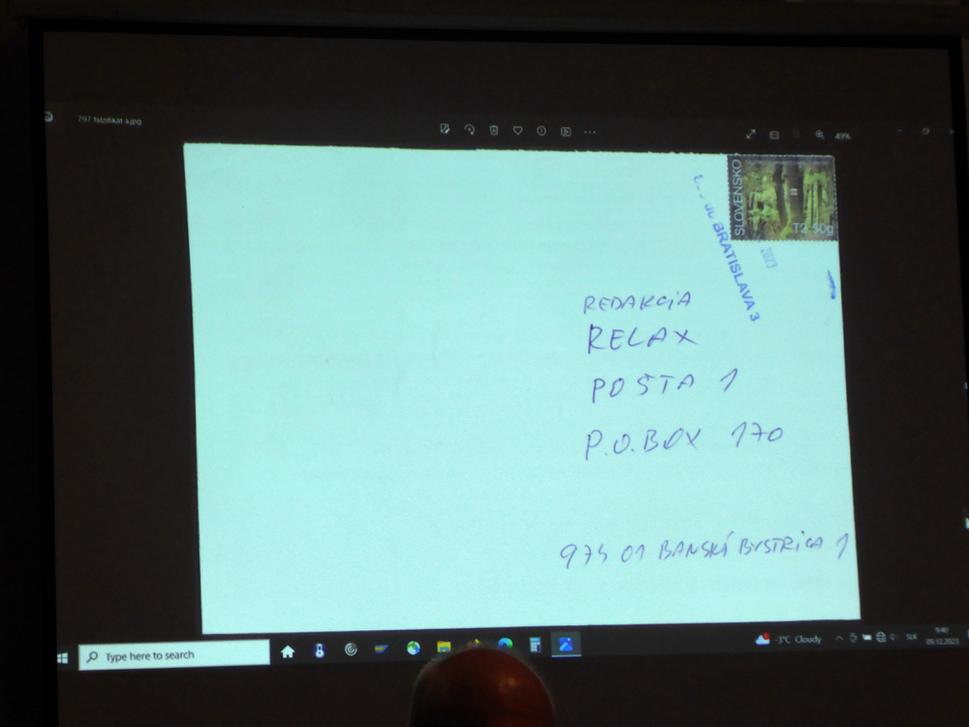 297 falzifikat a.jpg
49%
SLOVENSKO
T2 50g
BRATISLAVA 3
2023
REDAKCiA
RELAX
POŠTA 1
P.O.BOX 170
974 01 BANSKÁ BYSTRICA 1
Type here to search
-3°C Cloudy
SLK
9:40
09.12.2023